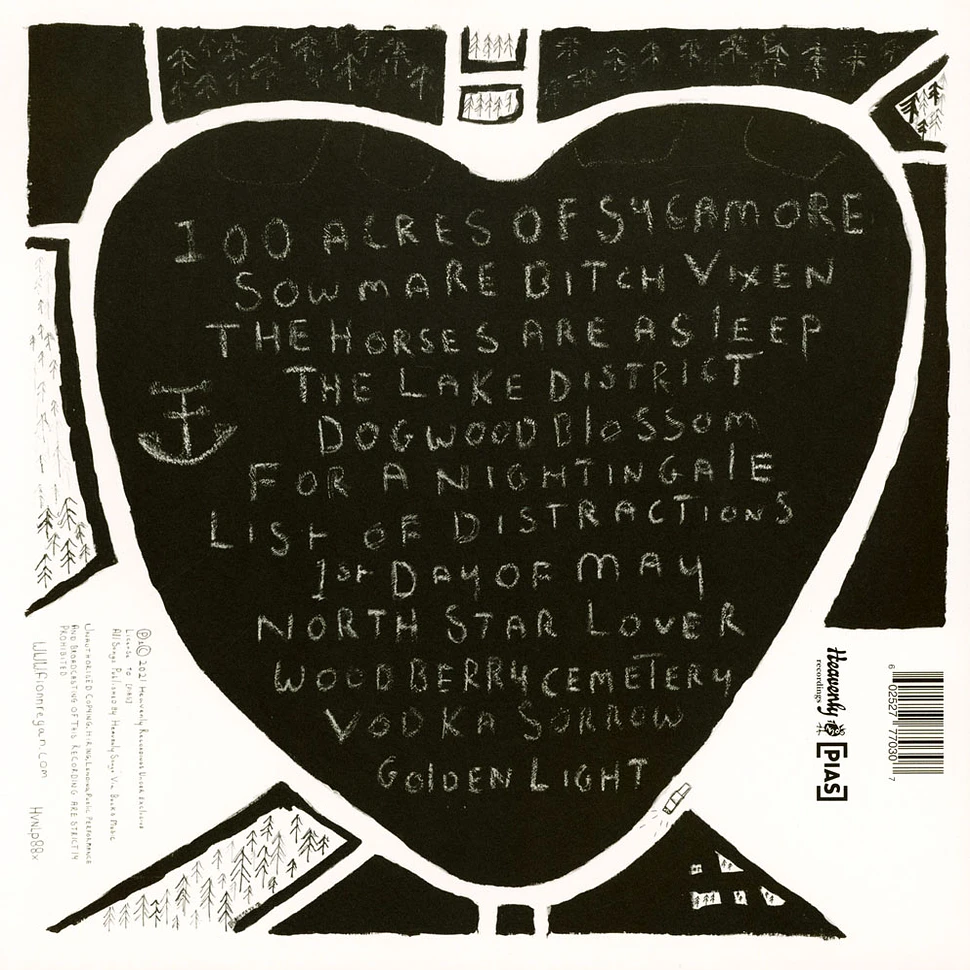 100 ACRES OF SYCAMORE
SOW MARE BITCH VIXEN
THE HORSES ARE ASlEEP
THE LAKE DISTRICT
DOGWOOD BloSSom
FOR A NIGHTINGAlE
LIST OF DISTRACTIONS
1st DAY OF MAY
NORTH STAR LOVER
WOODBERRY CEMETERY
VODKA SORROW
GOlDEN LIGHT
℗ & © 2021 Heavenly Recordings Under exclusive
License to [PIAS]
All Songs Published By Heavenly Songs Via Bucks Music
UNAUTHORISED COPYING, HIRING, LENDING, PUBLIC PERFORMANCE
AND BROADCASTING OF THIS RECORDING ARE STRICTlY
PROHIBITED
WWW.fionnregan.com HVNLP88X
Heavenly
recordings
[PIAS]
6 02527 77030 7